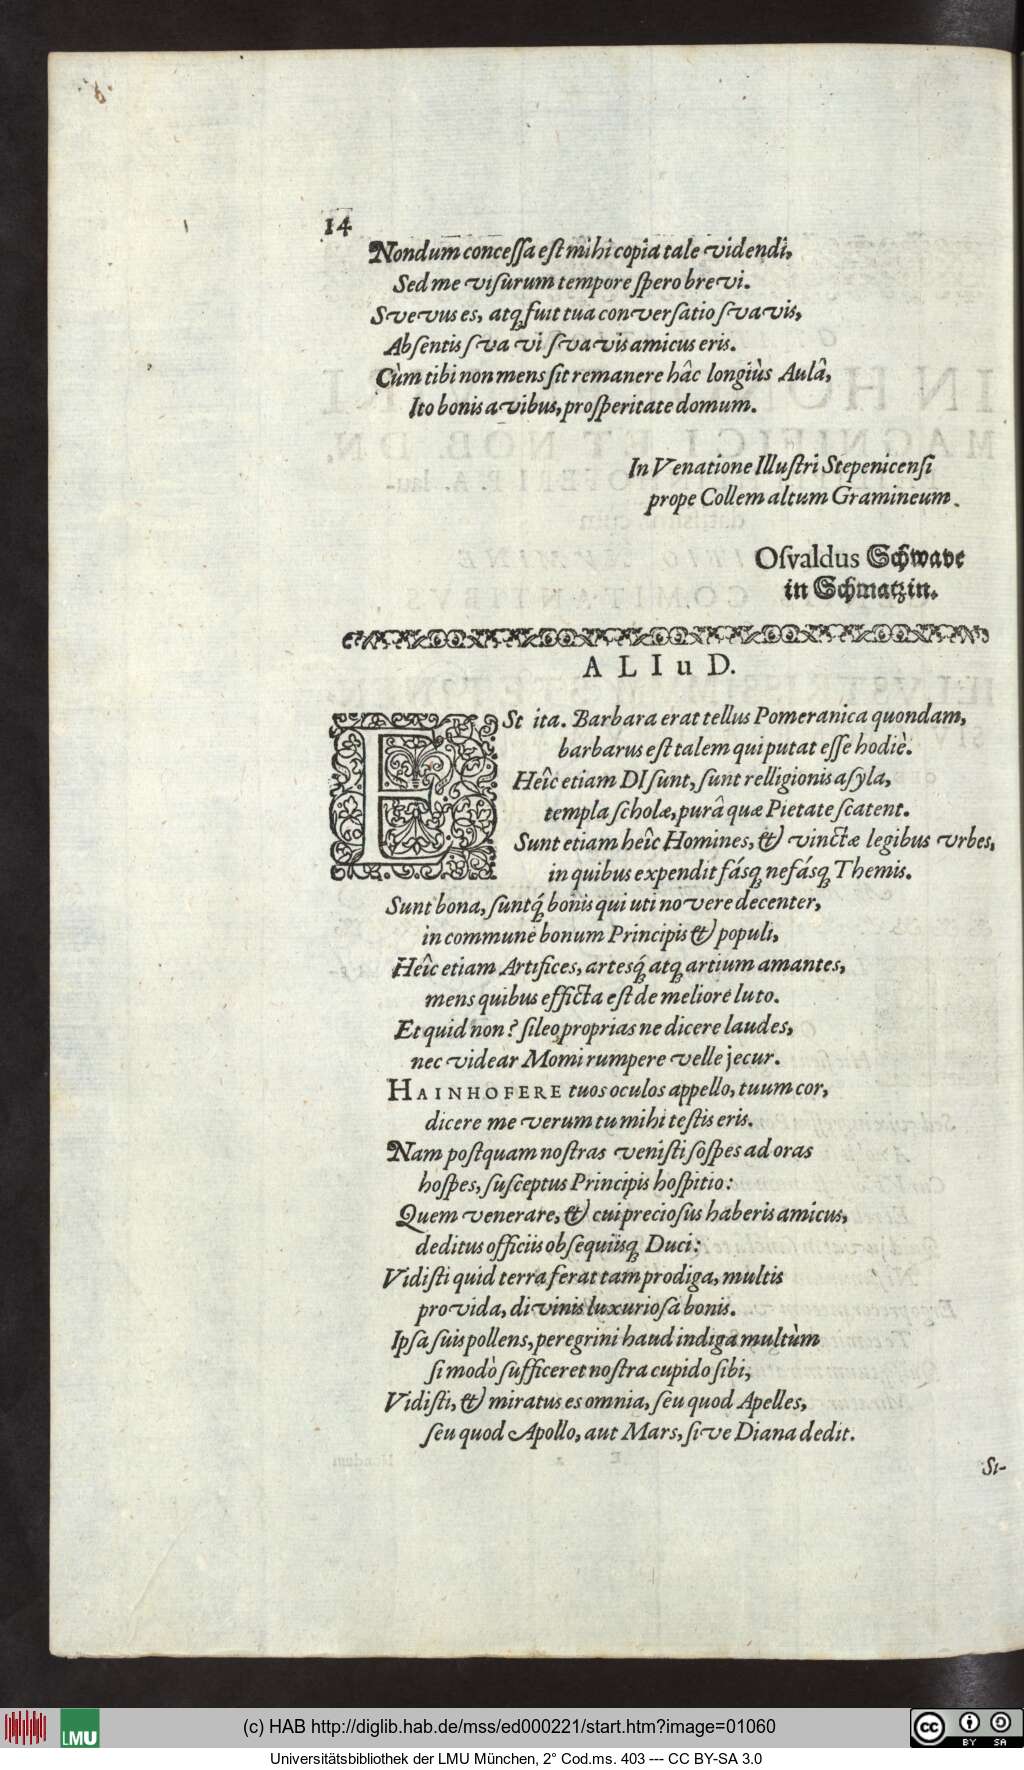 14
Nondum concessa est mihi copia tale videndi,
Sed me visurum tempore spero brevi.
Svevus es, atq; fuit tua conversatio svavis,
Absentis sva vi svavis amicus eris.
Cùm tibi non mens sit remanere hâc longiùs Aulâ,
Ito bonis avibus, prosperitate domum.
In Venatione Illustri Stepenicensi
prope Collem altum Gramineum.
Osvaldus Schwave
in Schmatzin.
ALIuD.
ESt ita. Barbara erat tellus Pomeranica quondam,
barbarus est talem qui putat esse hodiè.
Heîc etiam DI sunt, sunt relligionis asyla,
templa scholæ, purâ quæ Pietate scatent.
Sunt etiam heîc Homines, & vinctæ legibus vrbes,
in quibus expendit fásq; nefásq; Themis.
Sunt bona, suntq́; bonis qui uti novere decenter,
in commune bonum Principis & populi,
Heîc etiam Artifices, artesq́; atq; artium amantes,
mens quibus efficta est de meliore luto.
Et quid non? sileo proprias ne dicere laudes,
nec videar Momi rumpere velle jecur.
HAINHOFERE tuos oculos appello, tuum cor,
dicere me verum tu mihi testis eris.
Nam postquam nostras venisti sospes ad oras
hospes, susceptus Principis hospitio:
Quem venerare, & cui preciosus haberis amicus,
deditus officiis obsequiisq; Duci:
Vidisti quid terra ferat tam prodiga, multis
provida, divinis luxuriosa bonis.
Ipsa suis pollens, peregrini haud indiga multùm
si modò sufficeret nostra cupido sibi,
Vidisti, & miratus es omnia, seu quod Apelles,
seu quod Apollo, aut Mars, sive Diana dedit.
Si-
LMU
(c) HAB http://diglib.hab.de/mss/ed000221/start.htm?image=01060
cc BY SA
Universitätsbibliothek der LMU München, 2° Cod.ms. 403 --- CC BY-SA 3.0